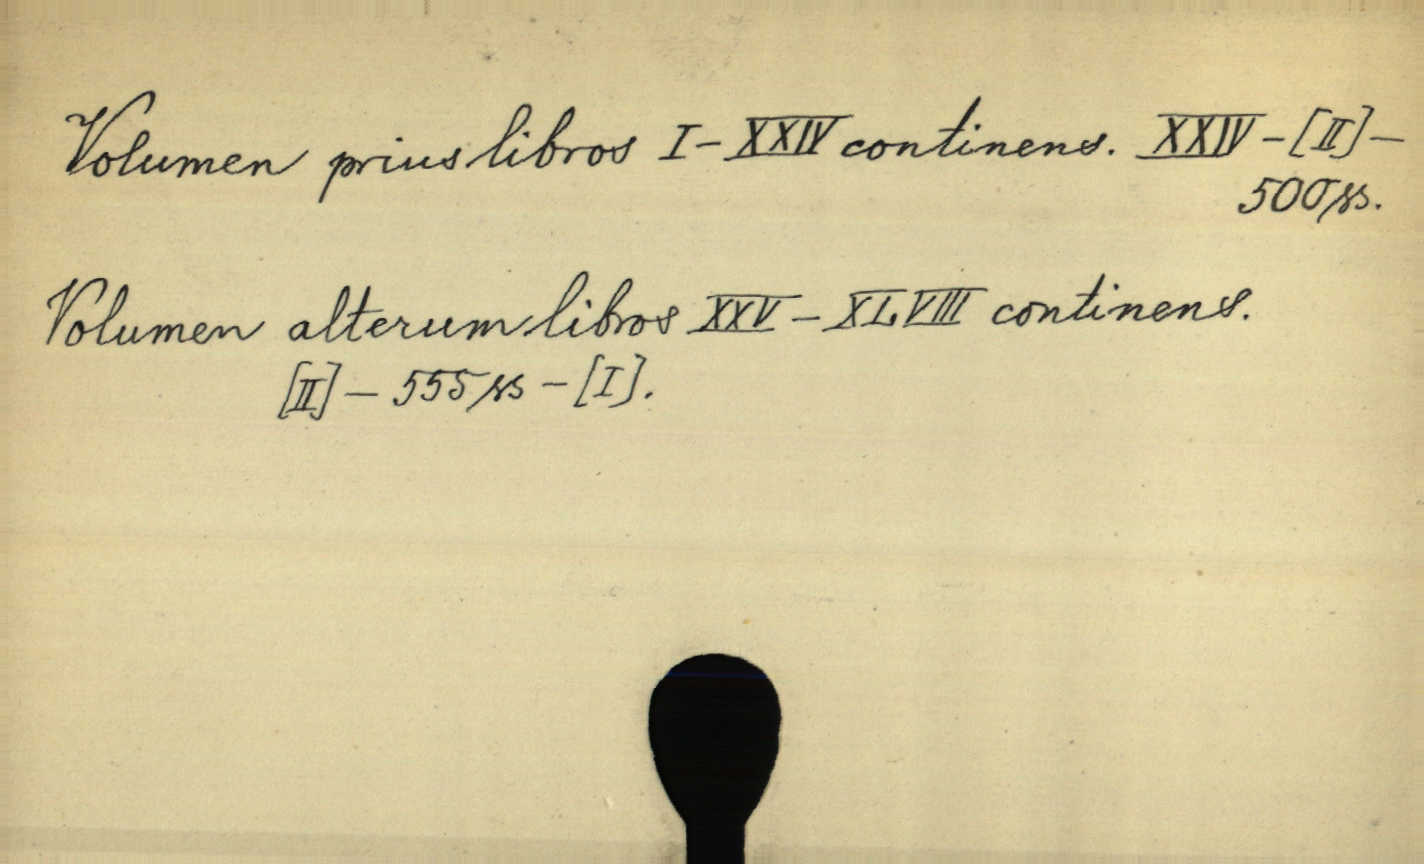 Volumen prius libros I-XXIV continens. XXIV-[II]-
500 ss.
Volumen alterum libros XXV-XLVIII continens.
[II]-555 ss-[I].